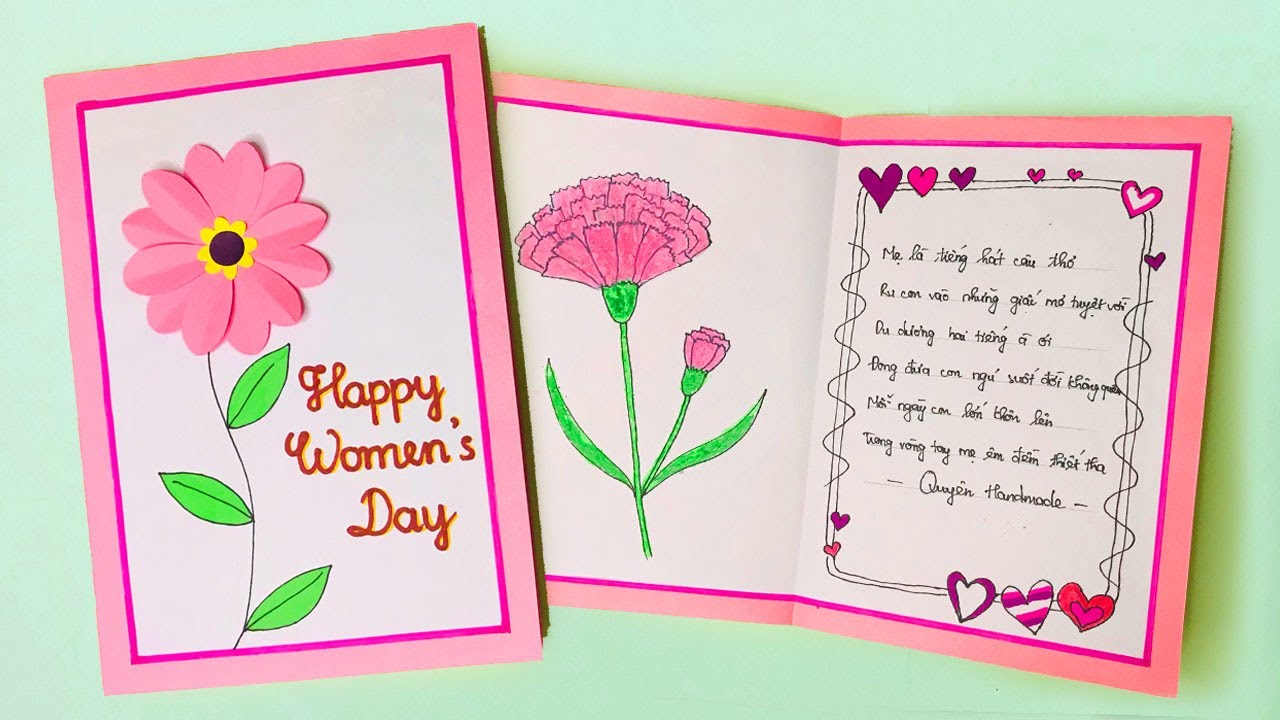 Happy
Women's
Day
Mẹ là tiếng hát câu thơ
Ru con vào những giấc mơ tuyệt vời
Du dương hai tiếng à ơi
Đong đưa con ngủ suốt đời không quên
Mỗi ngày con lớn thên lên
Trong vòng tay mẹ êm đềm thiết tha
- Quyên Handmade -